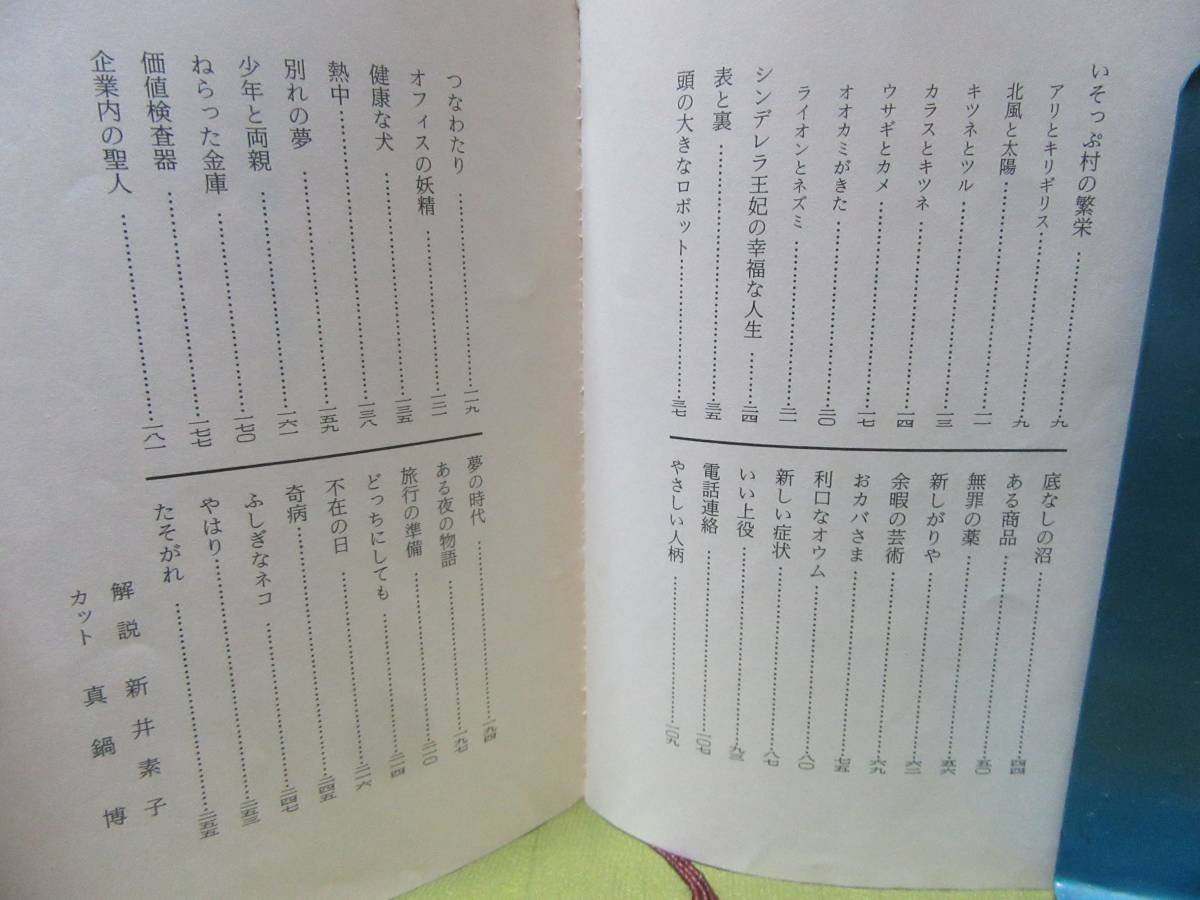 いそっぷ村の繁栄……九
アリとキリギリス……九
北風と太陽……九
キツネとツル……一一
カラスとキツネ……一三
ウサギとカメ……一四
オオカミがきた……一七
ライオンとネズミ……二〇
シンデレラ王妃の幸福な人生……二四
表と裏……三五
頭の大きなロボット……三七
底なしの沼……四四
ある商品……五〇
無罪の薬……五六
新しがりや……六二
余暇の芸術……六九
おカバさま……七五
利口なオウム……八〇
新しい症状……八七
いい上役……九三
電話連絡……一〇七
やさしい人柄……一〇九
つなわたり……一一九
オフィスの妖精……一三一
健康な犬……一三五
熱中……一三八
別れの夢……一五九
少年と両親……一六一
ねらった金庫……一七〇
価値検査器……一七七
企業内の聖人……一八一
夢の時代……一九四
ある夜の物語……一九七
旅行の準備……二一〇
どっちにしても……二一四
不在の日……二二六
奇病……二四五
ふしぎなネコ……二四七
やはり……二五三
たそがれ……二五五
解説 新井素子
カット 真鍋博